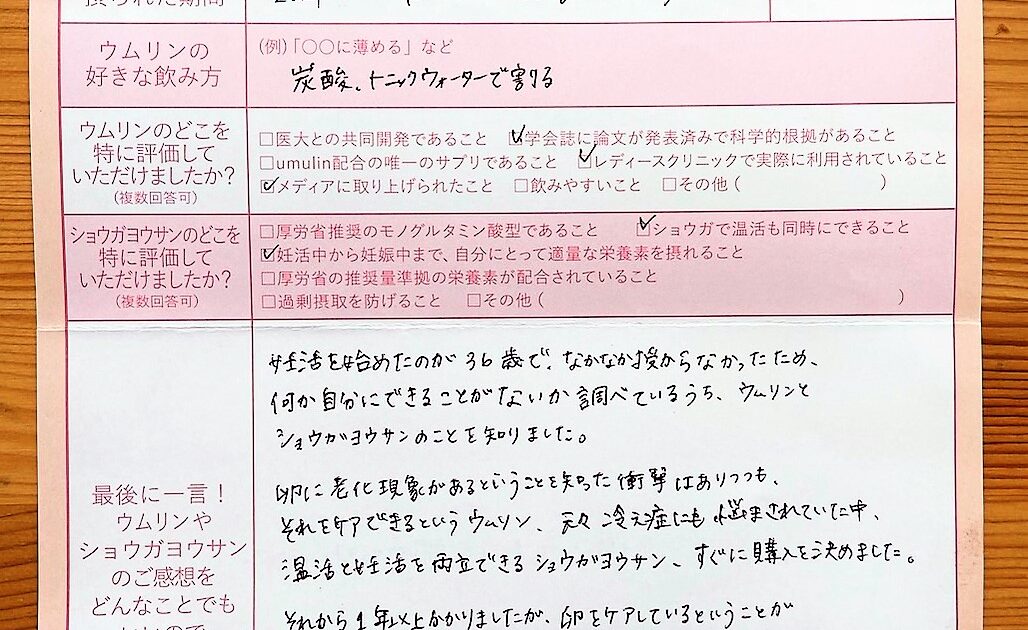 ウムリンの
好きな飲み方
(例)「〇〇に薄める」など
炭酸、トニックウォーターで割る
ウムリンのどこを
特に評価して
いただけましたか?
(複数回答可)
□医大との共同開発であること ☑学会誌に論文が発表済みで科学的根拠があること
□umulin配合の唯一のサプリであること ☑レディースクリニックで実際に利用されていること
☑メディアに取り上げられたこと □飲みやすいこと □その他( )
ショウガヨウサンのどこを
特に評価して
いただけましたか?
(複数回答可)
□厚労省推奨のモノグルタミン酸型であること ☑ショウガで温活も同時にできること
☑妊活中から妊娠中まで、自分にとって適量な栄養素を摂れること
□厚労省の推奨量準拠の栄養素が配合されていること
□過剰摂取を防げること □その他( )
最後に一言!
ウムリンや
ショウガヨウサン
のご感想を
どんなことでも
妊活を始めたのが36歳で、なかなか授からなかったため、
何か自分にできることがないか調べているうち、ウムリンと
ショウガヨウサンのことを知りました。
卵に老化現象があるということを知った衝撃はありつつも、
それをケアできるというウムリン、元々冷え症にも悩まされていた中、
温活と妊活を両立できるショウガヨウサン、すぐに購入を決めました。
それから1年以上かかりましたが、卵をケアしているということが